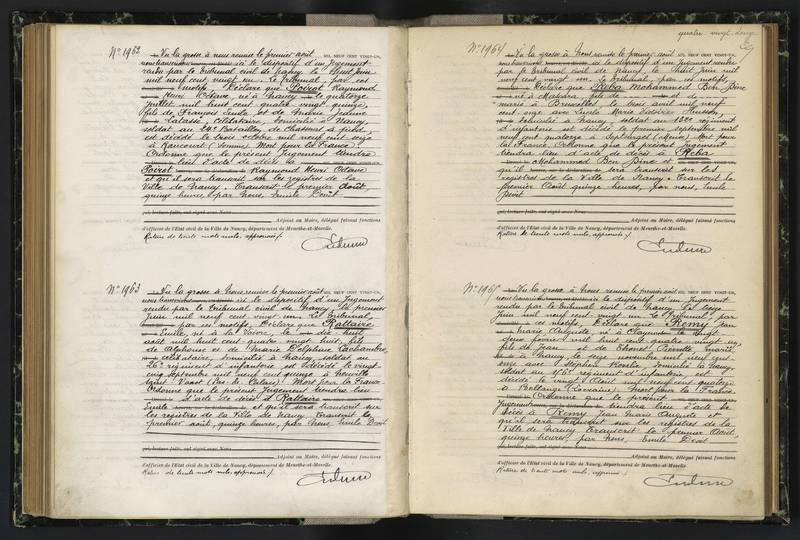 N° 1962
Vu la grosse à nous remise le premier août MIL NEUF CENT VINGT-UN,
ici le dispositif d'un Jugement
rendu par le Tribunal civil de Nancy le huit juin
mil neuf cent vingt un. Le Tribunal, par ces
motifs, Déclare que Poirot Raymond
Henri Octave, né à Nancy le quatorze
juillet mil huit cent quatre vingt quinze,
fils de François Emile et de Marie
célibataire, domicilié à Nancy,
soldat au Bataillon de Chasseurs à pied,
est décédé le trois octobre mil neuf cent seize
à Rancourt (Somme) Mort pour la France.
Ordonne que le présent Jugement tiendra
lieu d'acte de décès à
Poirot Raymond Henri Octave
et qu'il sera transcrit sur les registres de la
Ville de Nancy. Transcrit le premier Août,
quinze heures, par Nous, Emile Devit
Adjoint au Maire, délégué faisant fonctions
d'officier de l'État civil de la Ville de Nancy, département de Meurthe-et-Moselle.
Rature de trente mots nuls, approuvés /.
N° 1963
Vu la grosse à Nous remise le premier août MIL NEUF CENT VINGT-UN,
ici le dispositif d'un Jugement
rendu par le Tribunal civil de Nancy le premier
juin mil neuf cent vingt un. Le Tribunal
par ces motifs, Déclare que Rattaire
Emile, né à la Voivre, le dix huit
août mil huit cent quatre vingt huit, fils
de Alphonse et de Marie Delphine Lachambre,
célibataire, domicilié à Nancy, soldat au
26e régiment d'infanterie est décédé le vingt
cinq septembre mil neuf cent quinze à Neuville
Saint Vaast (Pas de Calais) Mort pour la France.
Ordonne que le présent Jugement tiendra lieu
d'acte de décès à Rattaire
Emile et qu'il sera transcrit sur
les registres de la Ville de Nancy. Transcrit le
premier août, quinze heures, par Nous, Emile Devit
Adjoint au Maire, délégué faisant fonctions
d'officier de l'État civil de la Ville de Nancy, département de Meurthe-et-Moselle.
Rature de trente mots nuls, approuvés /.
quatre vingt douze
N° 1964
Vu la grosse à Nous remise le premier août MIL NEUF CENT VINGT-UN,
ici le dispositif d'un Jugement rendu
par le Tribunal civil de Nancy, le huit juin mil
neuf cent vingt un. Le Tribunal, par ces motifs,
Déclare que Reba Mohammed Ben
né à fils de et de
marié à Bruxelles le trois avril mil neuf
cent onze avec Lucie Marie
domicilié à Nancy, soldat au régiment
d'infanterie est décédé le premier septembre mil
neuf cent quatorze à (Meuse) Mort pour
la France, Ordonne que le présent Jugement
tiendra lieu d'acte de décès à Reba
Mohammed Ben et
qu'il sera transcrit sur les
registres de la Ville de Nancy. Transcrit le
premier Août quinze heures, par nous, Emile
Devit
Adjoint au Maire, délégué faisant fonctions
d'officier de l'État civil de la Ville de Nancy, département de Meurthe-et-Moselle.
Rature de trente mots nuls, approuvés /.
N° 1965
Vu la grosse à Nous remise le premier août MIL NEUF CENT VINGT-UN,
ici le dispositif d'un Jugement
rendu par le Tribunal civil de Nancy le
juin mil neuf cent vingt un. Le Tribunal, par
ces motifs, Déclare que Remy Jean
Marie Auguste, né à
deux février mil huit cent quatre vingt un,
fils de Jean et de marié
à Nancy, le seize novembre mil neuf cent
onze avec domicilié à Nancy,
soldat au régiment d'infanterie est
décédé le vingt Août mil neuf cent quatorze
à (Lorraine) Mort pour la France.
Ordonne que le présent
Jugement tiendra lieu d'acte de
décès à Remy Jean Marie Auguste et
qu'il sera transcrit sur les registres de la
Ville de Nancy. Transcrit le premier Août,
quinze heures, par Nous, Emile Devit
Adjoint au Maire, délégué faisant fonctions
d'officier de l'État civil de la Ville de Nancy, département de Meurthe-et-Moselle.
Rature de trente mots nuls, approuvés /.